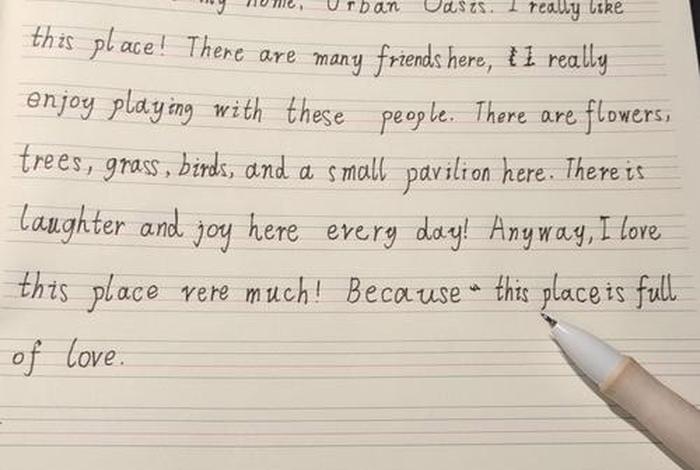 my home, Urban Oasis. I really like
this place! There are many friends here, I really
enjoy playing with these people. There are flowers,
trees, grass, birds, and a small pavilion here. There is
laughter and joy here every day! Anyway, I love
this place vere much! Because this place is full
of love.